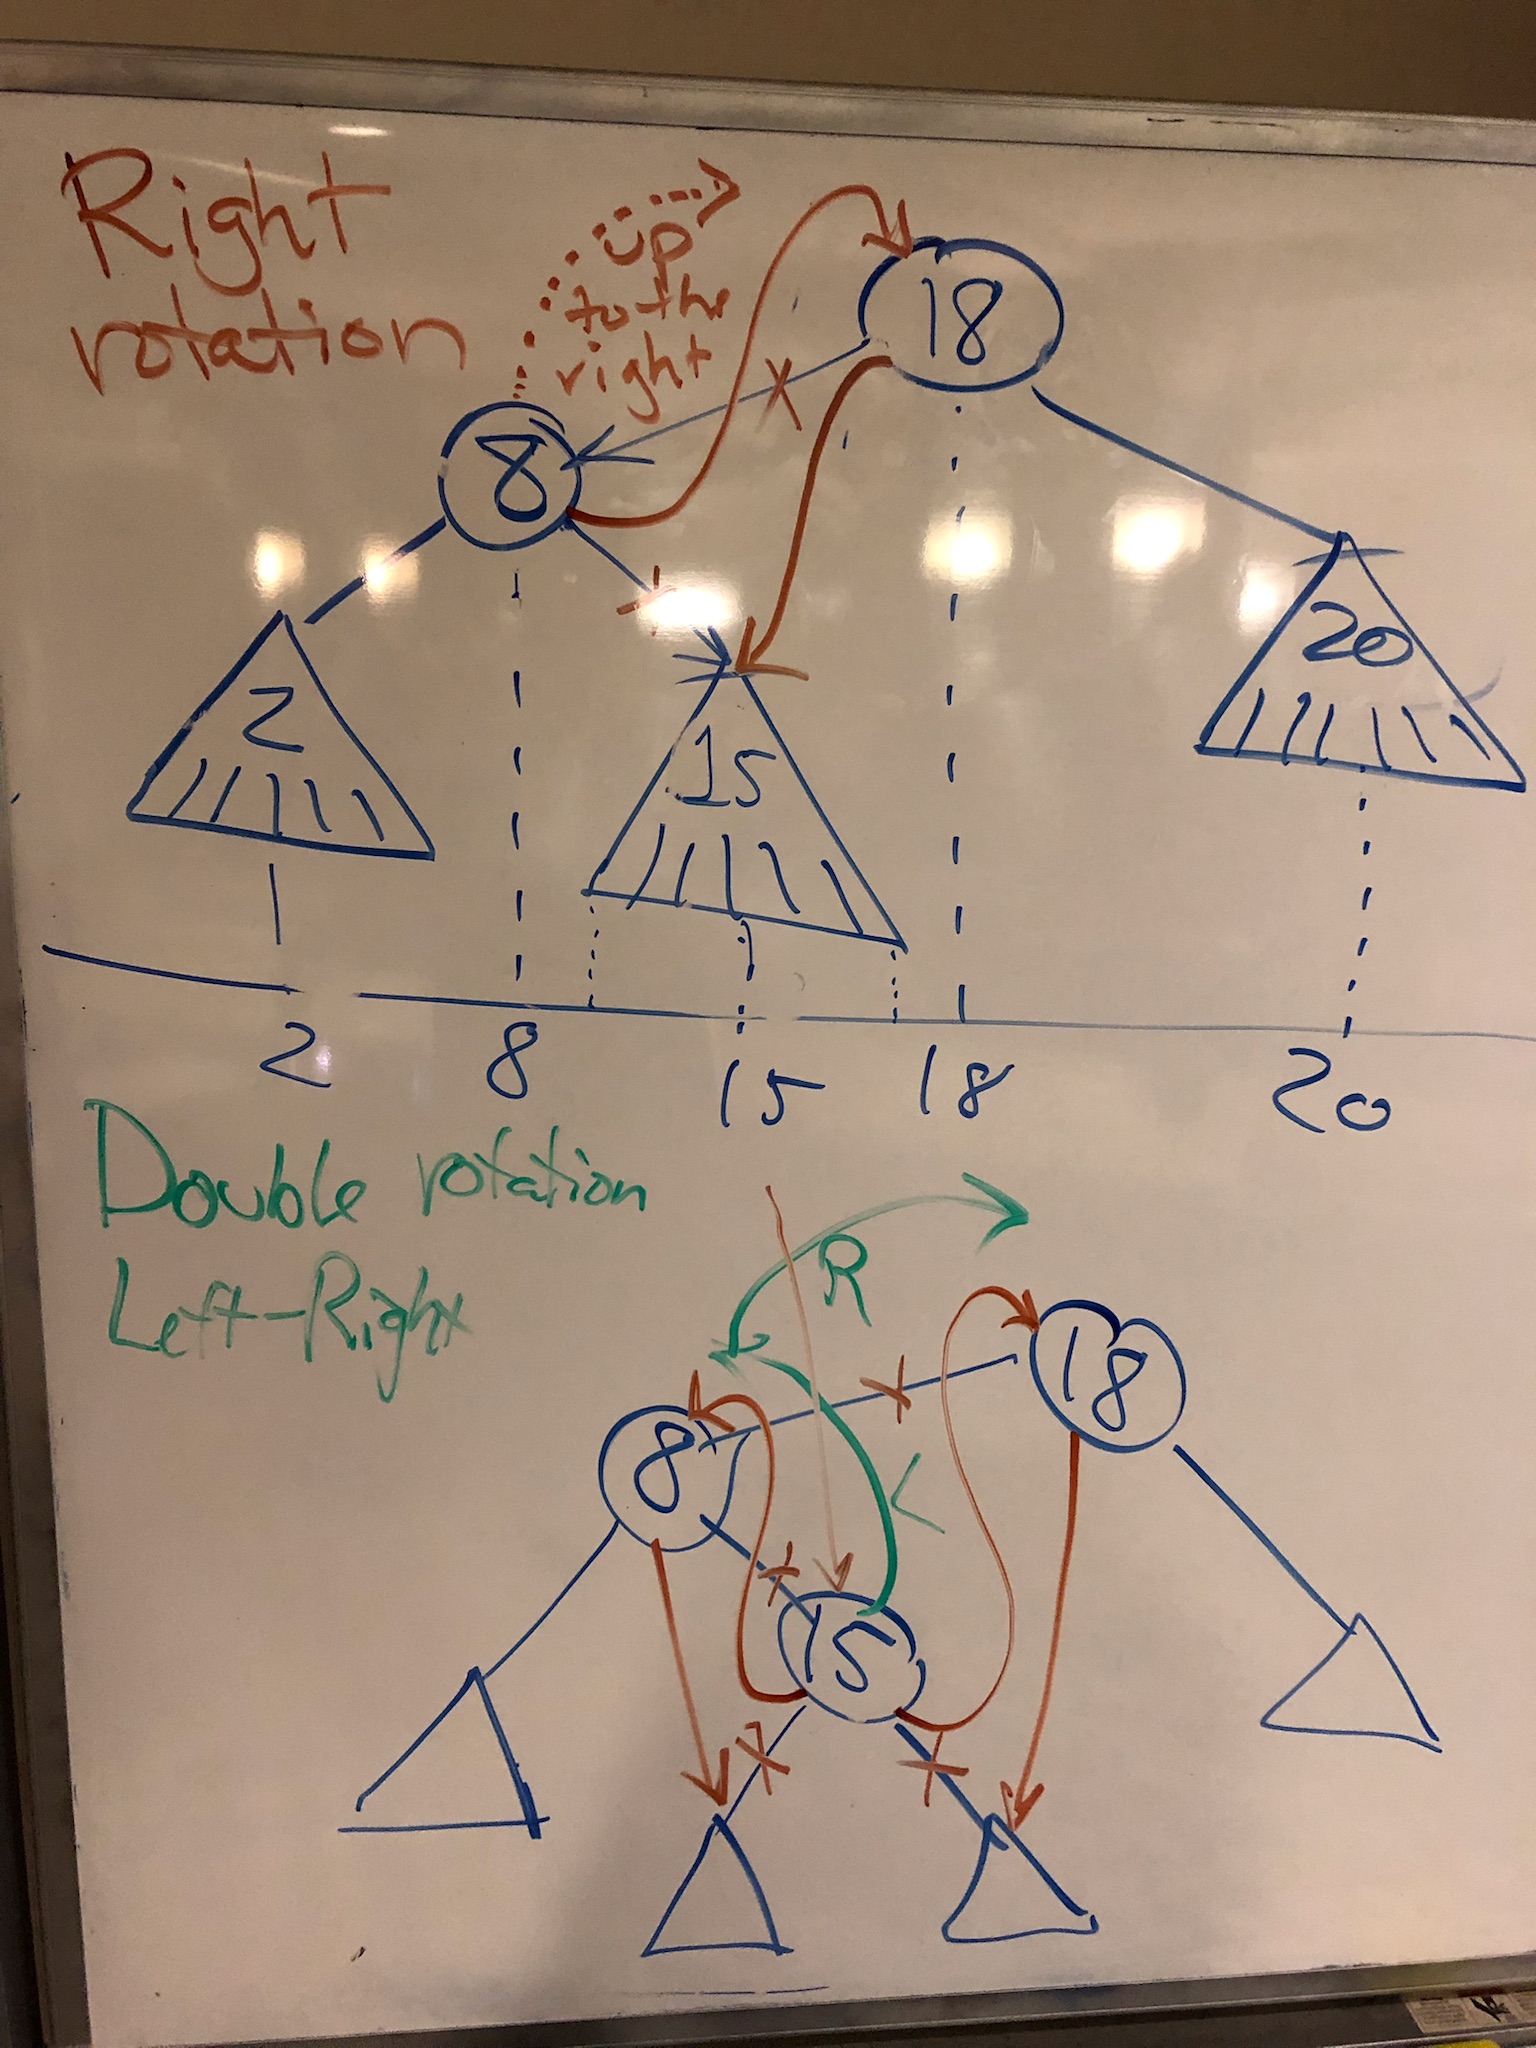 Right
rotation
up
to the
right
18
8
2
15
20
2 8 15 18 20
Double rotation
Left-Right
R
18
8
L
15